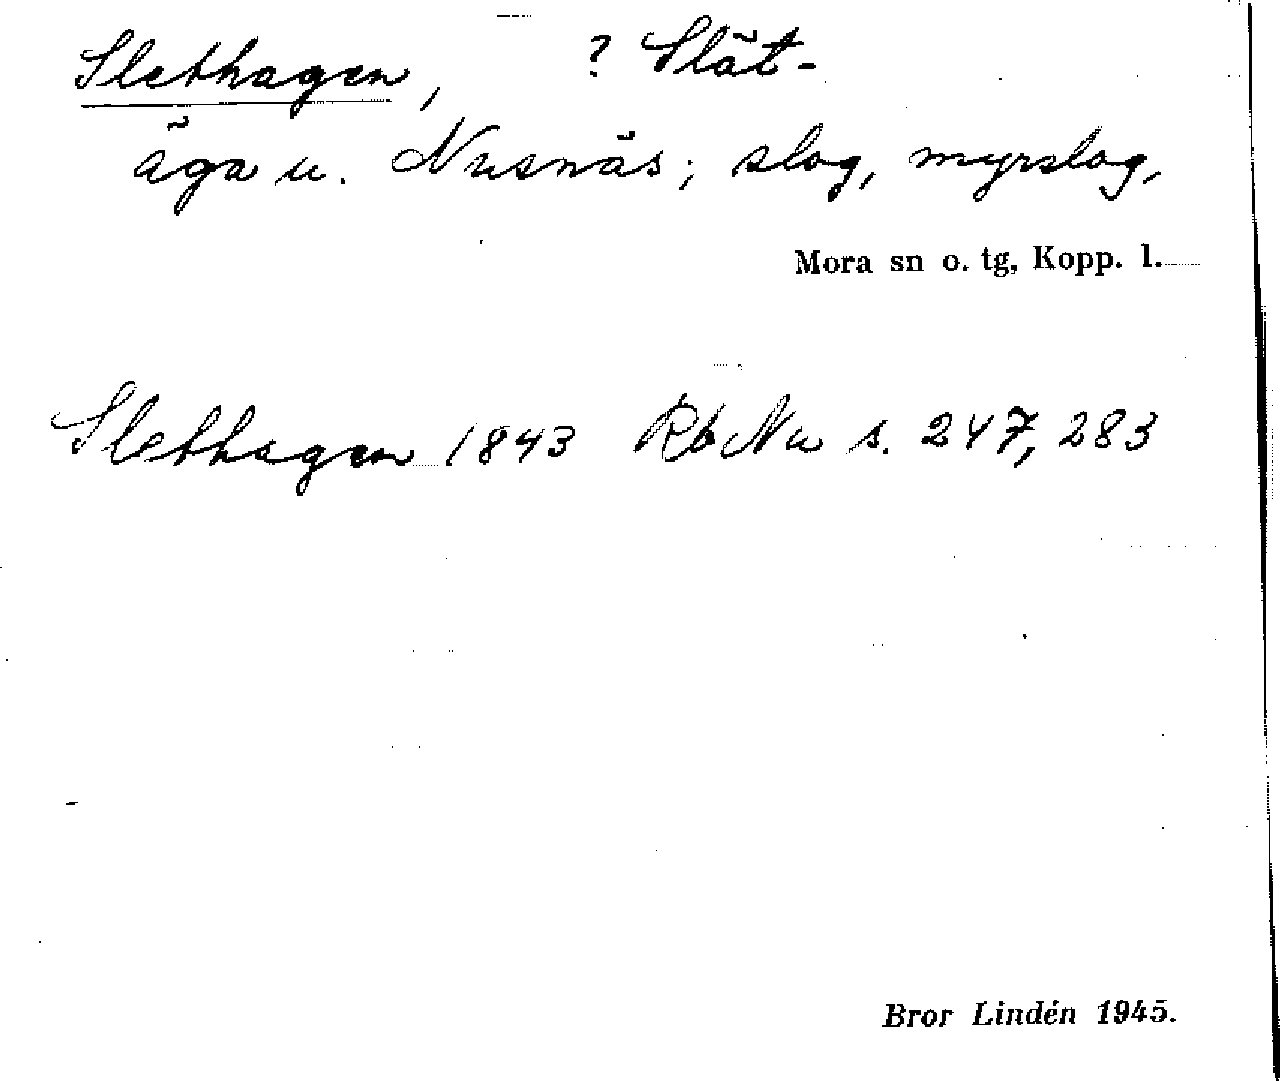 Slethagen, ? Slät-
äga u. Nusnäs; slog, myrslog,
Mora sn o. tg, Kopp. l.
Slethagen 1843 Rb Nu s. 247, 283
Bror Lindén 1945.